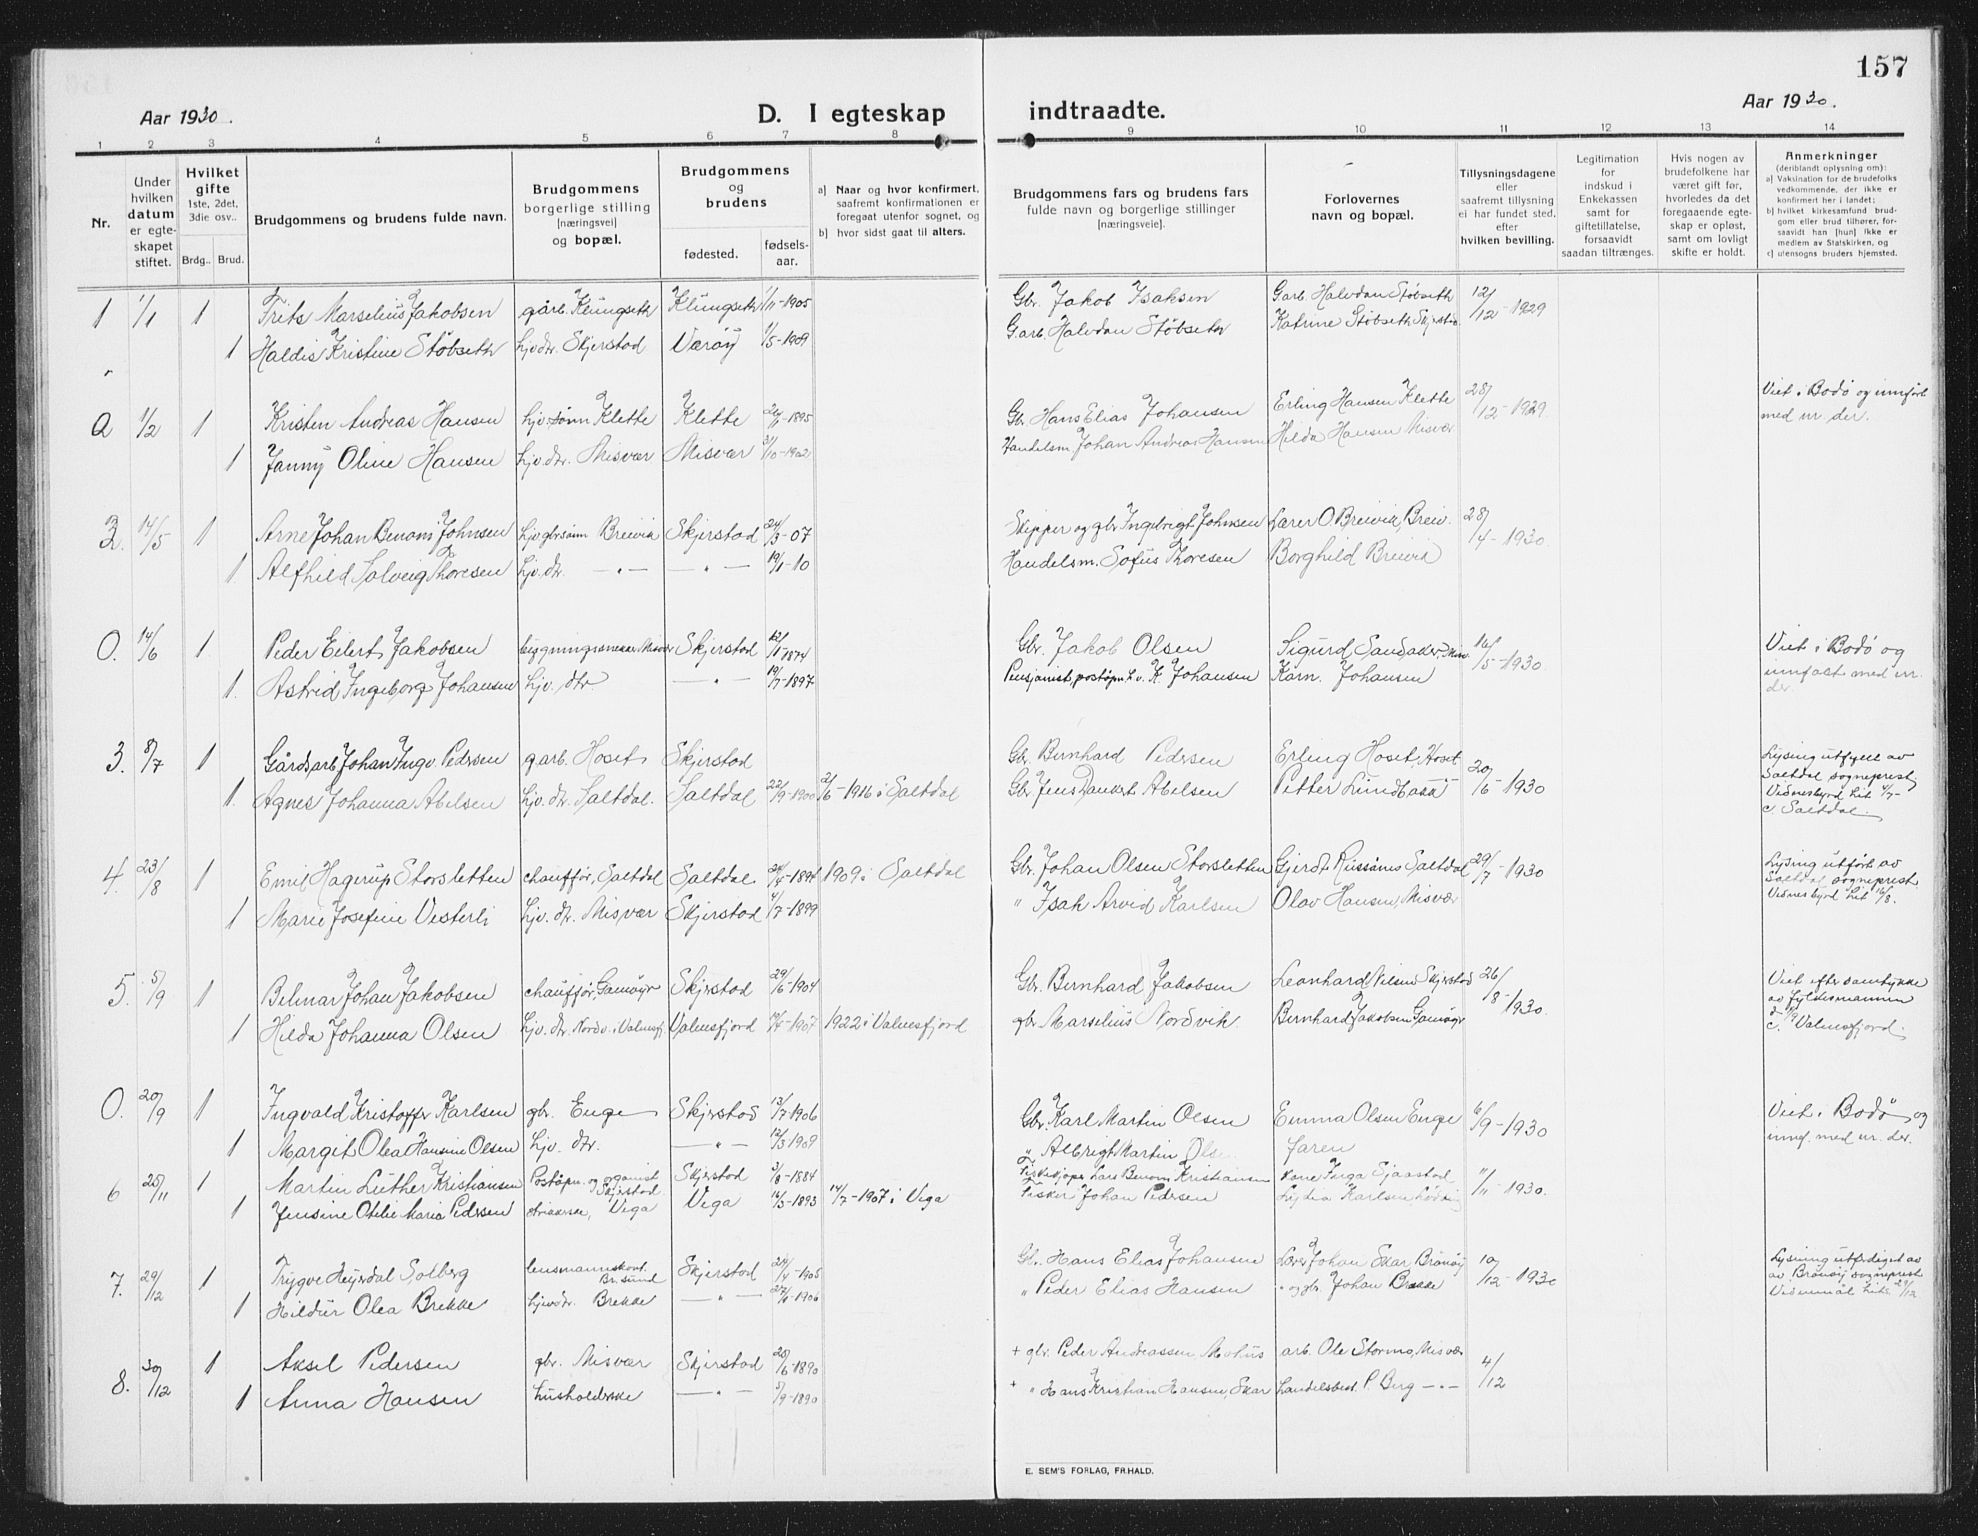 157
Aar 1930.
D. I egteskap
indtraadte.
Aar 1930.
1 2 3 4 5 6 7 8 9 10 11 12 13 14
Nr.
Under hvilken datum er egteskapet stiftet.
Hvilket gifte 1ste, 2det, 3die osv..
Brdg.. Brud.
Brudgommens og brudens fulde navn.
Brudgommens borgerlige stilling [næringsvei] og bopæl.
Brudgommens og brudens
fødested.
fødsels-aar.
a) Naar og hvor konfirmert, saafremt konfirmationen er foregaat utenfor sognet, og
b) hvor sidst gaat til alters.
Brudgommens fars og brudens fars fulde navn og borgerlige stillinger [næringsveie].
Forlovernes navn og bopæl.
Tillysningsdagene eller saafremt tillysning ei har fundet sted, efter hvilken bevilling.
Legitimation for indskud i Enkekassen samt for giftetillatelse, forsaavidt saadan tiltrænges.
Hvis nogen av brudefolkene har været gift før, hvorledes da det foregaaende egteskap er opløst, samt om lovligt skifte er holdt.
Anmerkninger
(deriblandt oplysning om):
a) Vaksination for de brudefolks vedkommende, der ikke er konfirmert her i landet;
b) hvilket kirkesamfund brudgom eller brud tilhører, forsaavidt han [hun] ikke er medlem av Statskirken, og
c) utensogns bruders hjemsted.
1 1/1 1 Frits Marselius Jakobsen gårb. Klungseth Klungseth 1/11-1905 Gbr. Jakob Isaksen Garb. Halvdan Støbseth 12/12-1929
1 Haldis Kristine Støbseth hjv. dtr. Skjerstad Værøy 1/5-1909 Garb. Halvdan Støbseth Katrine Støbseth Skjerstad
1/2 1 Kristen Andreas Hansen hjv. sønn Klette Klette -1895 Gb. Hans Elias Johansen Erling Hansen Klette 28/12-1929 Viet i Bodø og innført med nr. der.
1 Janny Oline Hansen hjv. dtr. Misvær Misvær 31/10-1902 Handelsm. Johan Andreas Hansen Hilda Hansen Misvær
2. 14/5 1 Arne Johan Benoni Johnsen hjv. gbrsønn Breivik Skjerstad 24/3-07 Skipper og gbr. Ingebrigt Johnsen Lærer O. Breivik, Breiv. 28/4-1930.
1 Alfhild Solveig Thoresen hjv. dtr. — " — — " — 19/1-10 Handelsm. Sofus Thoresen Borghild Breivik
0. 14/6 1 Peder Eilert Jakobsen bygningssnekker Misvær Skjerstad 12/1-1874 Gbr. Jakob Olsen Sigurd Sandaker, Misv. 16/5-1930 Viet i Bodø og innført med nr. der.
1. Astrid Ingeborg Johansen hjv. dtr. — " — 19/7-1897 Pensjonist, postøpn. L. v. K. Johansen Karn. Johansen
3. 8/7 1 Gårdsarb. Johan Ingv. Pedersen g.arb. Hoset Skjerstad Gbr. Bernhard Pedersen Erling Hoset, Hoset 20/6-1930 Lysing utført av Saltdal sogneprest Vidnesbyrd hit 4/7- c. Saltdal.
1. Agnes Johanna Abelsen hjv. dtr. Saltdal. Saltdal 22/9-1900 2/6-1916 i Saltdal Gbr. Jens Dankert Abelsen Petter Lundbakk
4. 23/8 1 Emil Hagerup Storsletten chauffør, Saltdal Saltdal 1909 i Saltdal Gbr. Johan Olsen Storsletten Gjerdt Russånes Saltdal 29/7-1930 Lysing utført av Saltdal sogneprest Vidnesbyrd hit 16/8.
1 Marie Josefine Vesterli hjv. dtr. Misvær Skjerstad 4/7-1899 " Isak Arvid Karlsen Olav Hansen, Misvær
5. 5/9 1 Johan Jakobsen chauffør, Skjerstad 29/6-1904 Gbr. Bernhard Jakobsen Leonhard Nilsen Skjerstad 26/8-1930. Viet efter samtykke av fylkesmannen c. Valnesfjord.
1 Hilda Johanna Olsen hjv. dtr. Nordv. i Valnesfj. Valnesfjord -1907 1922 i Valnesfjord gbr. Marselius Nordvik. Bernhard Jakobsen
0. 20/9 1 Ingvald Kristoffer Karlsen gbr. Enge Skjerstad 13/7-1906 Gbr. Karl Martin Olsen Emma Olsen Enge 6/9-1930 Viet i Bodø og innf. med nr. der.
1 Margit Olea Hansine Olsen hjv. dtr. — " — 12/3-1908 " Albrigt Martin Olsen faren
6 20/11 1 Martin Luther Kristiansen Poståpn. og organist Skjerstad Skjerstad 3/8-1884 Fiskekjøper Lars Benoni Kristiansen Kone Inga Sjaastad 11/11-1930.
1 Jensine Otelie Maria Pedersen Vega Vega 14/3-1893 14/7-1907 i Vega Fisker Johan Pedersen Lydia Karlsen,
7. 29/12 1 Trygve Heyerdal Solberg lensmannskont. Br.sund Skjerstad 24/4-1905 Gbr. Hans Elias Johansen Lærer Johan Skar Brønøy 10/12-1930 Lysing utferdiget av Brønøy sogneprest
1 Hildur Olea Brekke hjv. dtr. Brekke — " — 27/6-1906 " Peder Elias Hansen " og gbr. Johan Brekke
8. 30/12 1 Aksel Pedersen gbr. Misvær Skjerstad 20/6-1890 + gbr. Peder Andreassen Mohus arb. Ole Stormo, Misvær 4/12
1 Anna Hansen husholderske — " — 5/9-1890 + " Hans Kristian Hansen, Skar handelsbest. P. Berg — " —
E. SEM'S FORLAG, FR.HALD.